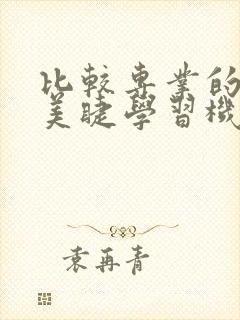 比較專業的
美睫學習機
袁再青